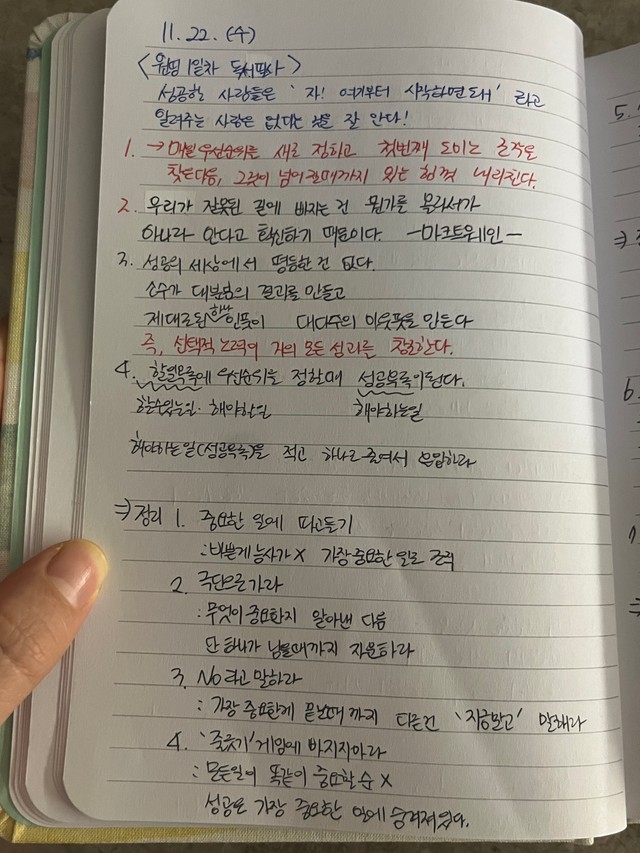 11. 22. (수)
<원띵 1일차 독서필사>
성공한 사람들은 '자! 여기부터 시작하면 돼' 라고
알려주는 사람은 없다는 것을 잘 안다!
1. → 매일 우선순위를 새로 정하고 첫번째 도미노 조각을
찾은다음, 그것이 넘어질때까지 있는 힘껏 내리친다.
2. 우리가 잘못된 길에 빠지는 건 뭔가를 몰라서가
아니라 안다고 확신하기 때문이다. -마크트웨인-
3. 성공의 세상에서 평등한 건 없다.
소수가 대부분의 결과를 만들고
제대로된 하나 인풋이 대다수의 아웃풋을 만든다
즉, 선택적 노력이 거의 모든 성과를 창조한다.
4. 할일목록에 우선순위를 정할때 성공목록이된다.
할수있는일· 해야할일 해야하는일
해야하는일(성공목록)을 적고 하나로 줄여서 하라
⇒ 정리 1. 중요한 일에 파고들기
: 바쁘게 능사가 X 가장 중요한 일로
2. 극단으로가라
: 무엇이 중요한지 알아낸 다음
단 하나가 남을때까지 자문하라
3. No라고 말하라
: 가장 중요한게 끝날때 까지 다른건 '지금말고' 말해라
4. '줄긋기' 게임에 빠지지마라
: 모든일이 똑같이 중요할순 X
성공은 가장 중요한 일에 숨겨져있다.
5.
6.